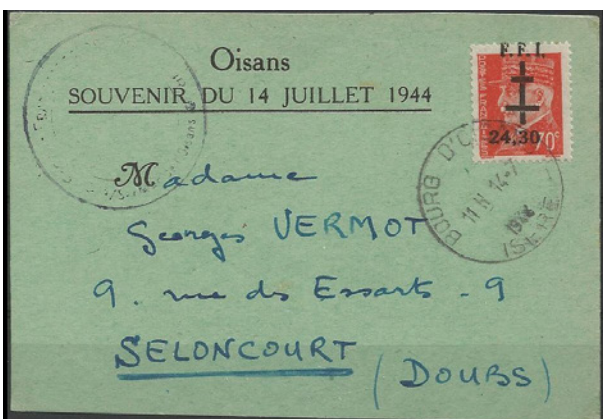 Oisans
SOUVENIR DU 14 JUILLET 1944
F.F.I.
24,30 70c
BOURG D'O
11 H 14-7
ISERE
Madame
Georges VERMOT
9. rue des Essarts - 9
SELONCOURT
(DOUBS)